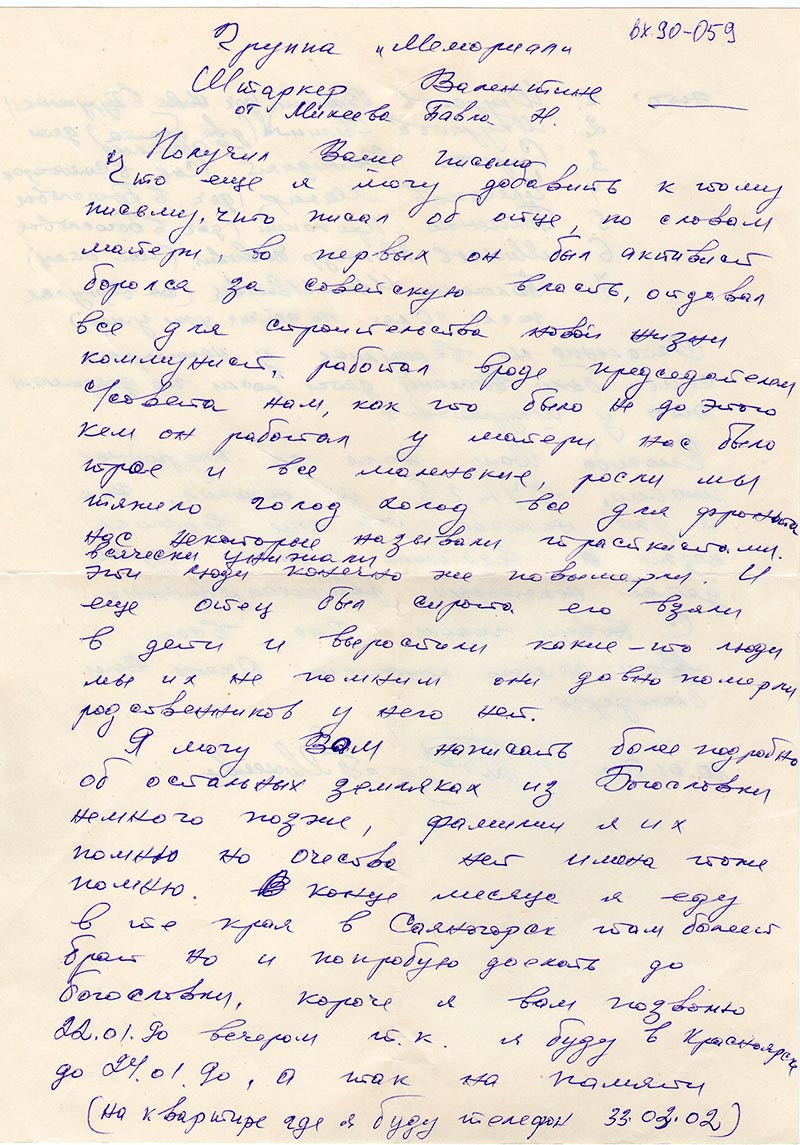 вх 90-059
Группа „Мемориал"
Штаркер Валентине
от Михеева Павла Н.
Получил Ваше письмо
Что еще я могу добавить к тому
письму, что писал об отце, по словам
матери, во первых он был активист
боролся за советскую власть, отдавал
все для строительства новой жизни
коммунист, работал вроде председателем
с/совета нам, как что было не до этого
кем он работал у матери нас было
трое и все маленькие, росли мы
тяжело голод холод все для фронта
нас некоторые называли трасткистами.
всячески унижали
эти люди конечно же повымерли. И
еще отец был сирота его взяли
в дети и выростили какие-то люди
мы их не помним они давно померли
родственников у него нет.
Я могу Вам написать более подробно
об остальных земляках из Богословки
немного позже, фамилии я их
помню но очества нет имена тоже
помню. В конце месяца я еду
в те края в Саяногорск там болеет
брат но и попробую доехать до
богословки, короче я вам позвоню
22.01.90 вечером т.к. я буду в Красноярске
до 24.01.90, а так на памяти
(на квартире где я буду телефон 33.02.02)